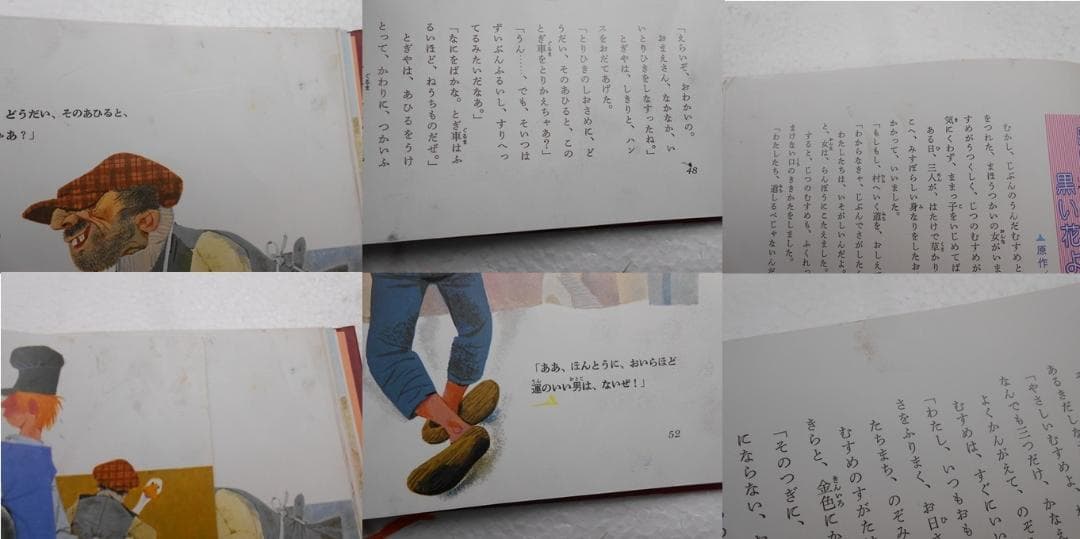 どうだい、そのあひると、
ゃあ？」
「えらいぞ、おわかいの。
おまえさん、なかなか、い
いとりひきをしなすったね。」
とぎやは、しきりと、ハン
スをおだてあげた。
「とりひきのしおさめに、ど
うだい、そのあひると、この
とぎ車をとりかえちゃあ？」
「うん……、でも、そいつは
ずいぶんふるいし、すりへっ
てるみたいだなあ。」
「なにをばかな。とぎ車はふ
るいほど、ねうちものだぜ。」
とぎやは、あひるをうけ
とって、かわりに、つかいふ
48
黒い花よ
原作
むかし、じぶんのうんだむすめと
をつれた、まほうつかいの女がいま
すめがうつくしく、じつのむすめが
気にくわず、ままっ子をいじめてば
ある日、三人が、はたけで草かり
こへ、みすぼらしい身なりをしたお
かかって、いいました。
「もしもし、村へいく道を、おしえ
わからなきゃ、じぶんでさがした
わたしたちは、いそがしいんだよ。
と、女は、らんぼうにこたえました。
すると、じつのむすめも、ふくれっ
まけない口のききかたをしました。
「わたしたち、道しるべじゃないん
「ああ、ほんとうに、おいらほど
運のいい男は、ないぜ！」
52
あるきだした
「やさしいむすめよ、
なんでも三つだけ、かなえ
よくかんがえて、のぞ
むすめは、すぐにいい
「わたし、いつもおも
さをふりまく、お日さ
たちまち、のぞみ
むすめのすがた
きらと、金色にか
「そのつぎに、
にならない、